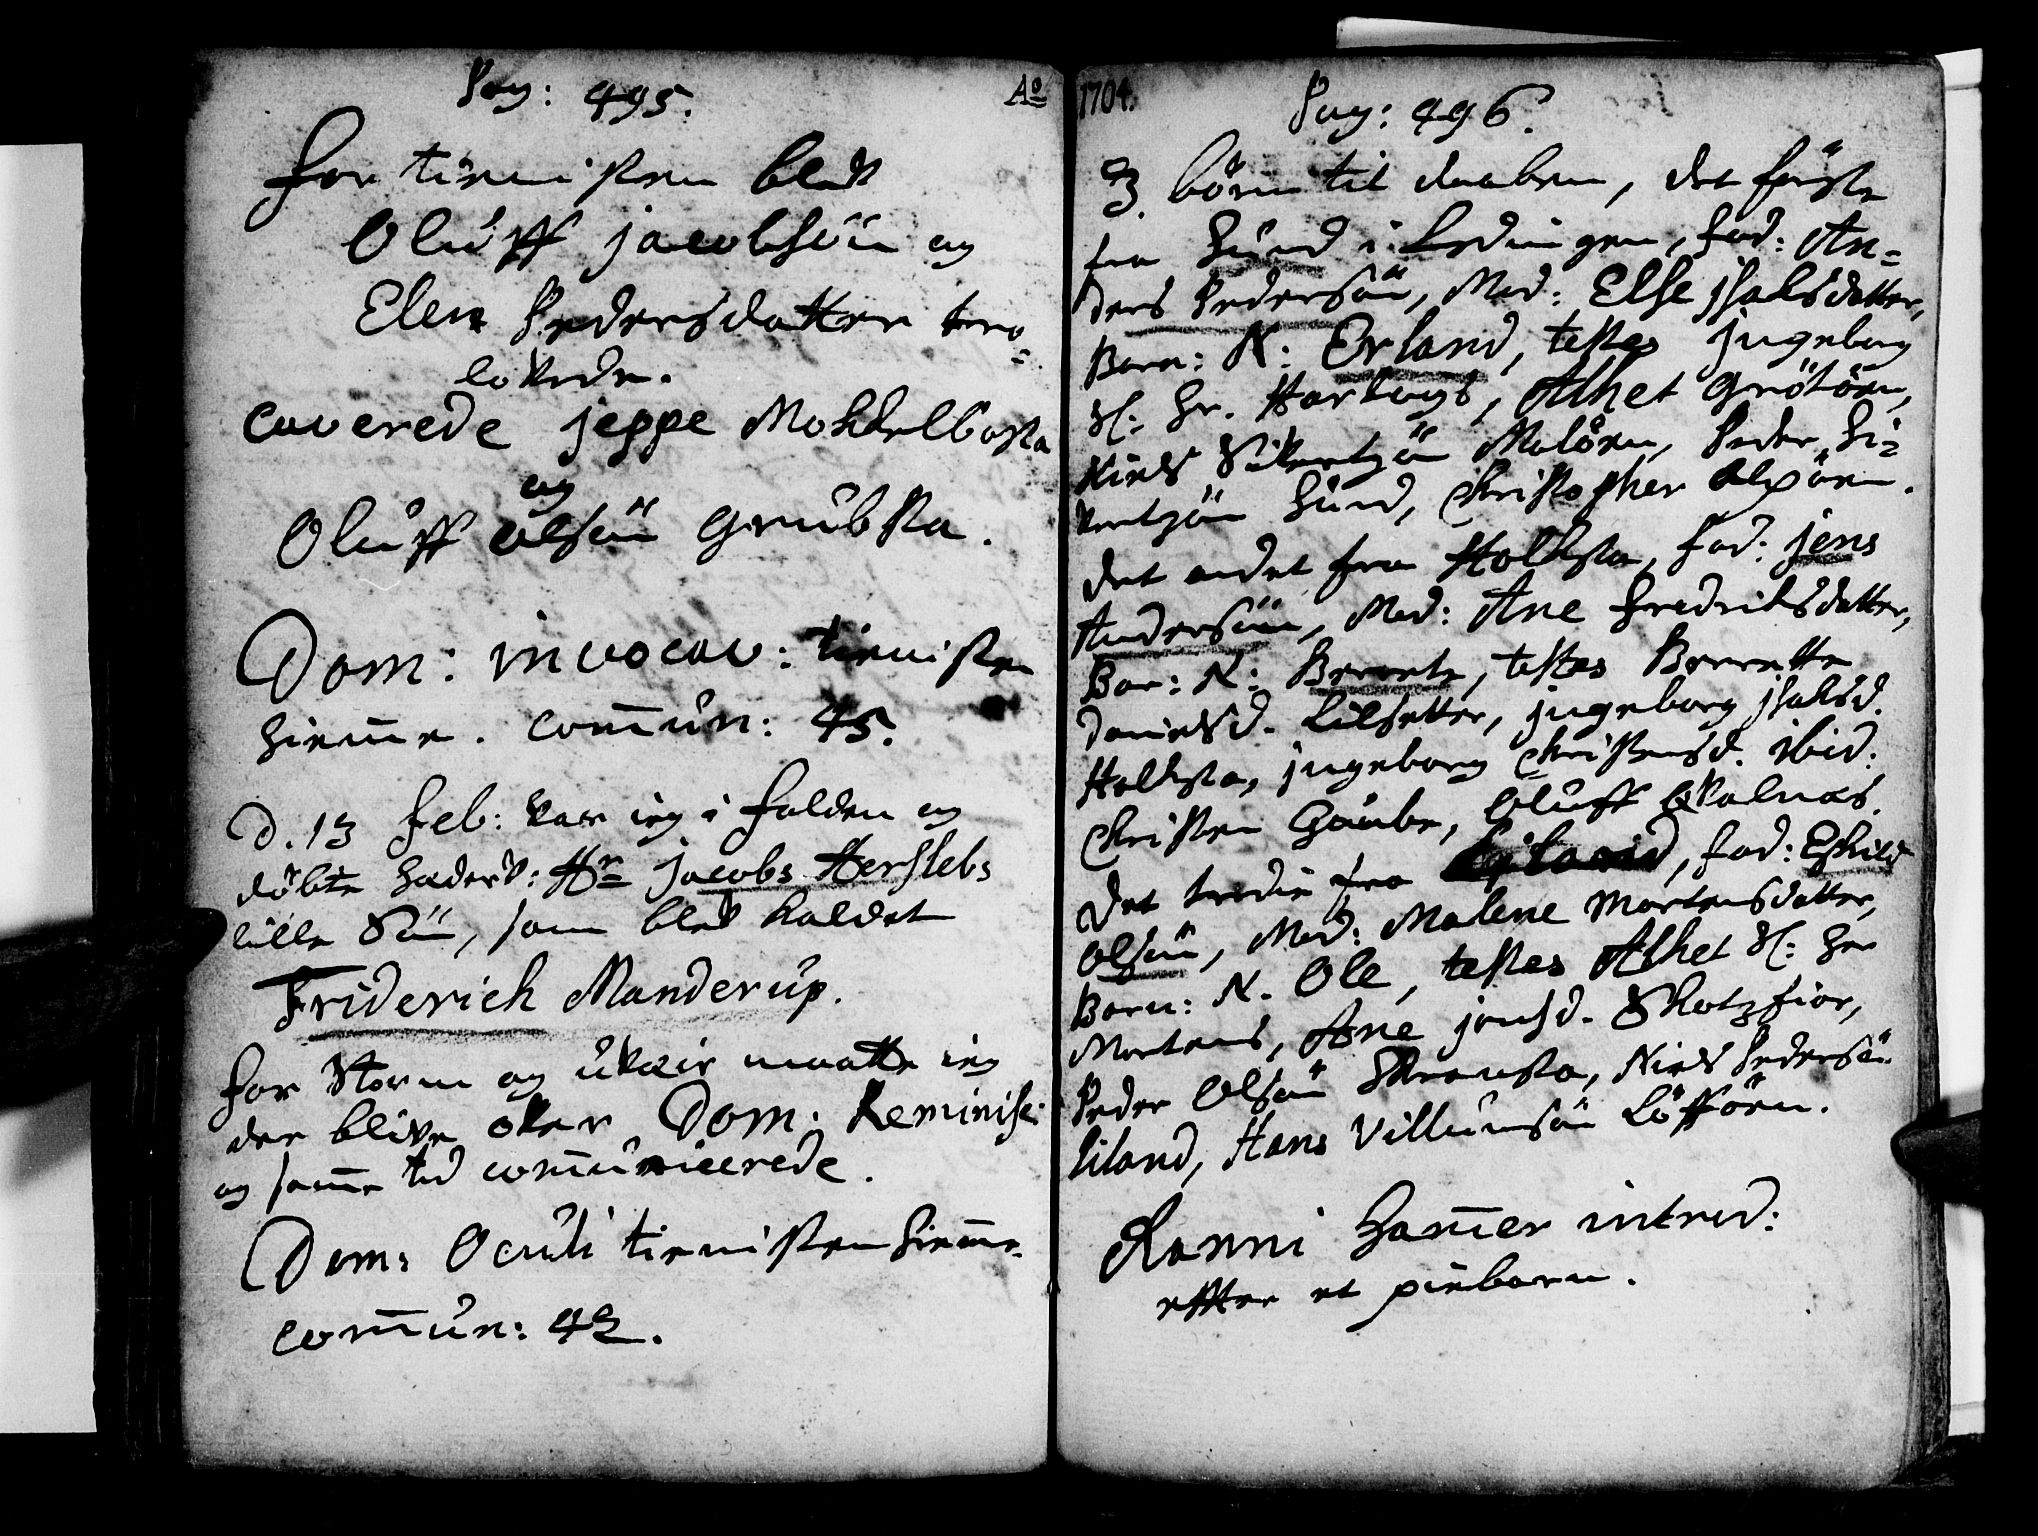 Pag: 495.
Ao
for tienisten blev
Oluff jacobsön og
Elen Pedersdatter tro=
lovede.
caverede jeppe Mohkelbosta
og
Oluff olsön Grubsta.
Dom: invocav: tienisten
hiem̅e. com̅un: 45.
D. 13 Feb: var ieg i Folden og
döbte hæderv: Hr jacobs Herslebs
lille Sön, som blev kaldet
Friderich Manderup.
for Storm og uveir maatte ieg
der blive over Dom: Reminisc:
og sam̅e tid com̅unicerede.
Dom: Oculi tienisten hiem̅e
com̅un: 42.
1704.
Pag: 496.
3. börn til daaben, det förste
fra Hund i Ledingen, fad: An=
ders Pedersön, Mod: Else jsaksdatter,
Barn: N: Erland, testes jngeborg
Sl: Hr. Hartvigs, Alhet Grötöen,
Niels Sivertzön Malöen, Peder Si=
vertzön Hund, Christopher olsöen.
det andet fra Holksta, fad: jens
Andersön, Mod: Ane Fredriksdatter,
Bar: N: Berrete, testes Berrette
Danielsd. Lilsetter, jngeborg jsaksd.
Holksta, jngeborg Christensd. ibid:
Christen Gaube, Oluff Qvalnæs.
Det tredie fra Liland, fad: Eskild
Olsön, Mod: Malene Mortensdatter,
Barn: N. Ole, testes Alhet Sl: Hr
Mortens, Ane jonsd. Skotzfior,
Peder Olsön Skrensta, Niels Pedersön
Liland, Hans Villumsön Löfföen.
Ranni Ham̅er introd:
effter et pigebarn.